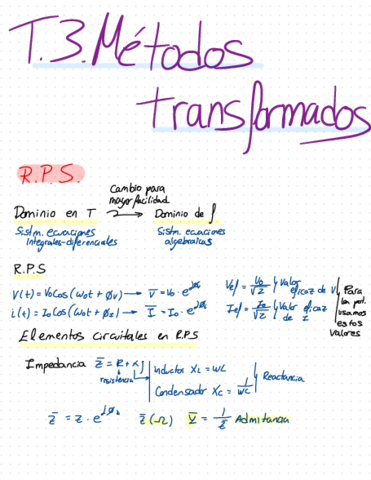 T.3. Métodos
transformados
R.P.S.
Cambio para
mayor facilidad
Dominio en T → Dominio de f
Sistm. ecuaciones
integrales-diferenciales
Sistm. ecuaciones
algebraicas
R.P.S
V(t) = V₀ Cos(ω₀t + Øv) → V̅ = V₀ · e^jØv
i(t) = I₀ Cos(ω₀t + ØI) → I̅ = I₀ · e^jØI
Vef = V₀/√2 Valor eficaz de V
Ief = I₀/√2 Valor eficaz de I
Para la pot. usamos estos valores
Elementos circuitales en R.P.S
Impedancia Z̅ = R + X j
resistencia
Inductor XL = ωL
Condensador XC = 1/ωC
Reactancia
Z̅ = Z · e^jØz Z̅(Ω) Y̅ = 1/Z̅ Admitancia